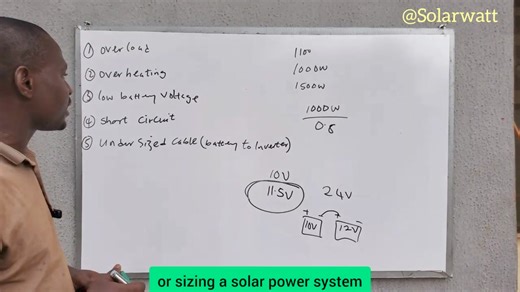 @Solarwatt
① Overload
② Overheating
③ low battery Voltage
④ Short circuit
⑤ Undersized Cable (battery to Inverter)
1100
1000W
1500W
1000W
0.8
10V
11.5V
24V
+ -
10V
12V
or sizing a solar power system